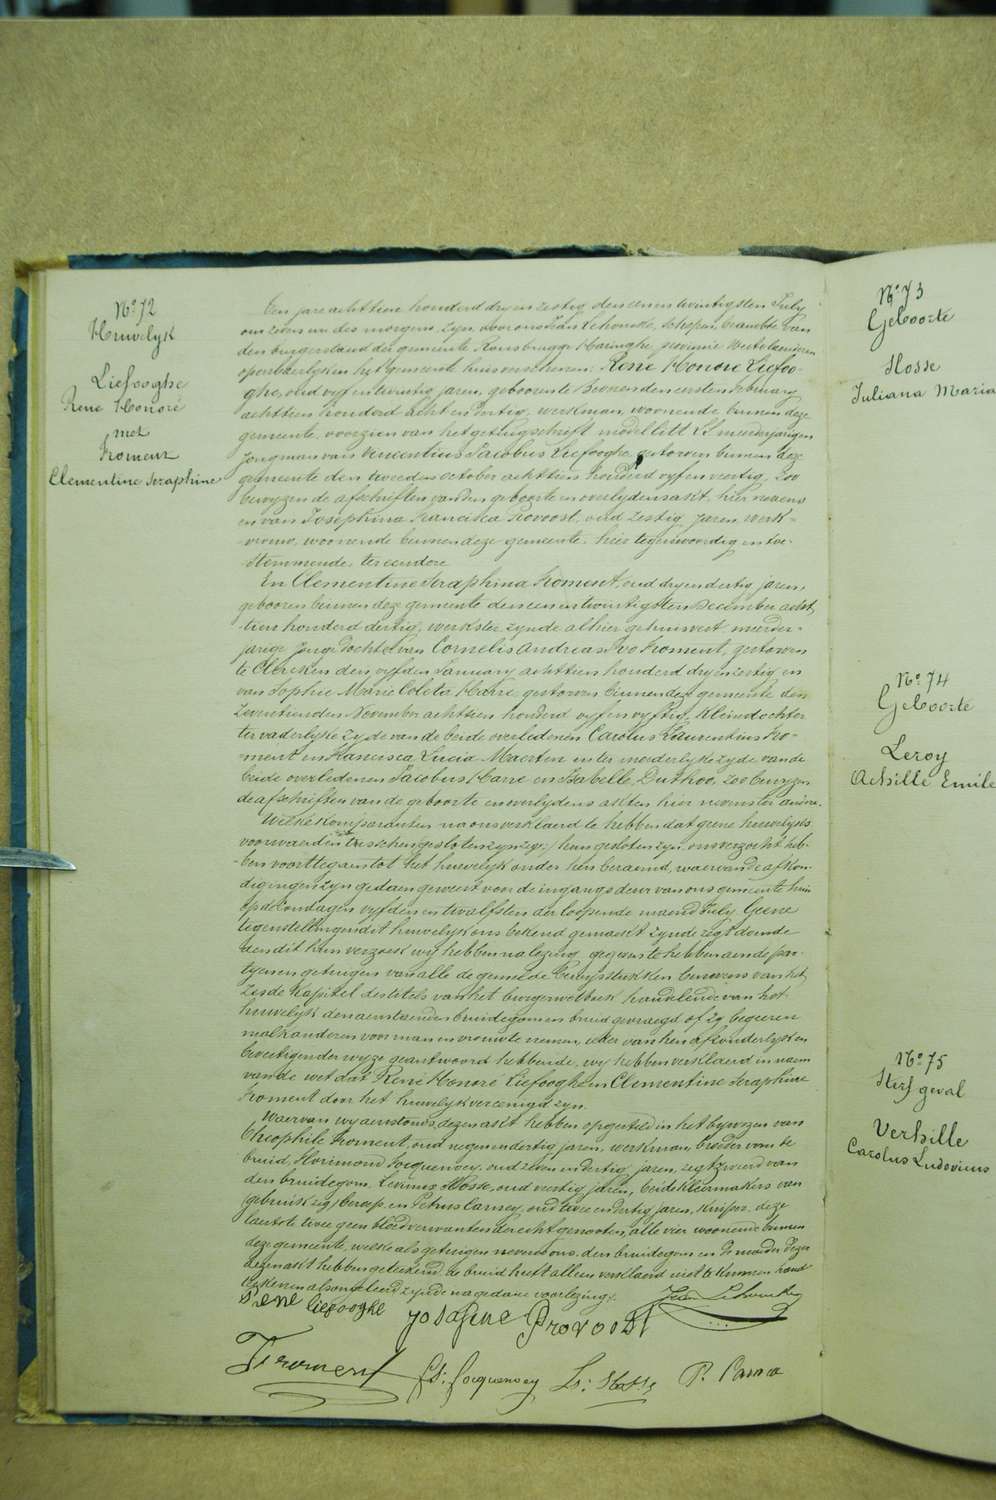 No 72
Huwelyk
Liefooghe
René Honoré
met
Froment
Clementine Seraphine
Een jare achttien honderd dry en zestig den eenentwintigsten July
om zeven ure des morgens, zyn voor ons Schepen, beambte van
den burgerstand der gemeente Rousbrugge Haringhe, provincie Westvlaenderen
openbaerlyk in het gemeente huis verschenen: René Honoré Liefoo-
ghe, oud vyf en twintig jaren, geboren te Beveren den eersten February
achttien honderd acht en dertig, werkman, woonende binnen deze
gemeente, voorzien van het getuigschrift model litt. meerderjarigen
jongman van Vincentius Jacobus Liefooghe gestorven binnen deze
gemeente den tweeden october achttien honderd vyf en veertig, zoo
bewyzen de afschriften van den geboorte en overlydensakt, hier nevens
en van Josephina Francisca Provoost, oud zestig jaren, werk-
vrouw, woonende binnen deze gemeente, hier tegenwoordig en toe-
stemmende, ter eendere
En Clementine Seraphina Froment, oud dry en dertig jaren,
geboren binnen deze gemeente den eenentwintigsten December acht
tien honderd dertig, werkster zynde alhier gehuisvest, meerder-
jarige jonge dochter van Cornelis Andreas Ivo Froment, gestorven
te Clercken den vyfden January achttien honderd dry en zestig en
van Sophie Marie Coleta Harre gestorven binnen deze gemeente den
Zeventienden November achttien honderd vyf en vyftig, kleindochter
ter vaderlyke zyde van de beide overledenen Carolus Laurentius Fro-
ment en Francisca Lucia Maerten en ter moederlyke zyde van de
beide overledenen Jacobus Harre en Isabelle Duthoo, zoo bewyzen
de afschriften van de geboorte en overlydens akten hier nevens ter andere.
Welke komparanten na ons verklaerd te hebben dat geene huwelyks
voorwaerden tusschen hun gesloten zyn, ons verzocht heb-
ben voort te gaen tot het huwelyk onder hun beraemd, waervan de afkon-
digingen zyn gedaen geweest voor de ingangs deur van ons gemeente huis
op de Zondagen vyfden en twalfsten der loopende maend July. Geene
tegenstellingen dit huwelyk ons bekend gemaekt zynde regt doende
aen dit hun verzoek wy hebben na lezing gegeven te hebben aen de par-
tyen en getuigen van alle de gemelde bewysstukken benevens van het
zesde kapitel des titels van het burgerwetboek handelende van het
huwelyk den aenstaenden bruidegom en bruid gevraegd of zy begeeren
malkanderen voor man en vrouw te nemen, ieder van hen afzonderlyk en
bevestigender wyze geantwoord hebbende, wy hebben verklaerd in naem
van de wet dat René Honoré Liefooghe en Clementine Seraphine
Froment door het huwelyk vereenigd zyn.
Waervan wy aenstonds dezen akt hebben opgesteld in het bywezen van
Theophile Froment, oud negen en dertig jaren, werkman, broeder van de
bruid, Florimond Jocquenoey, oud zeven en dertig jaren, regtzweerd van
den bruidegom, Levinus Hosse, oud veertig jaren, beide kleermakers van
beroep en Petrus oud twee en dertig jaren, kuiper, deze
laetste twee geen bloedverwanten der echtgenooten, alle vier woonende binnen
deze gemeente, welke als getuigen nevens ons, den bruidegom en de moeder dezes
akt hebben geteekend, de bruid heeft alleen verklaerd niet te kunnen hand
teekenen als ongeleerd zynde na gedane voorlezing.
Rene liefooghe Josefine Provoost
Froment Fl: Jocquenoey Ls: Hosse P.
No 73
Geboorte
Hosse
Juliana Maria
No 74
Geboorte
Leroy
Achille Emile
No 75
Sterfgeval
Verhille
Carolus Ludovicus